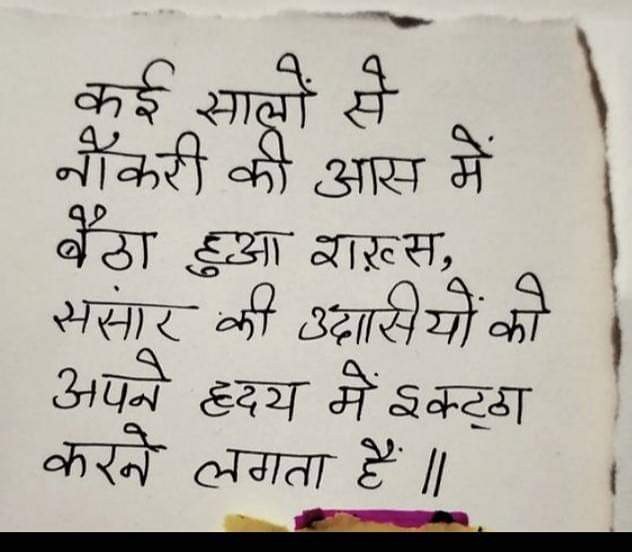 कई सालों से
नौकरी की आस में
बैठा हुआ शख़्स,
संसार की उदासियों को
अपने हृदय में इकट्ठा
करने लगता हैं ||